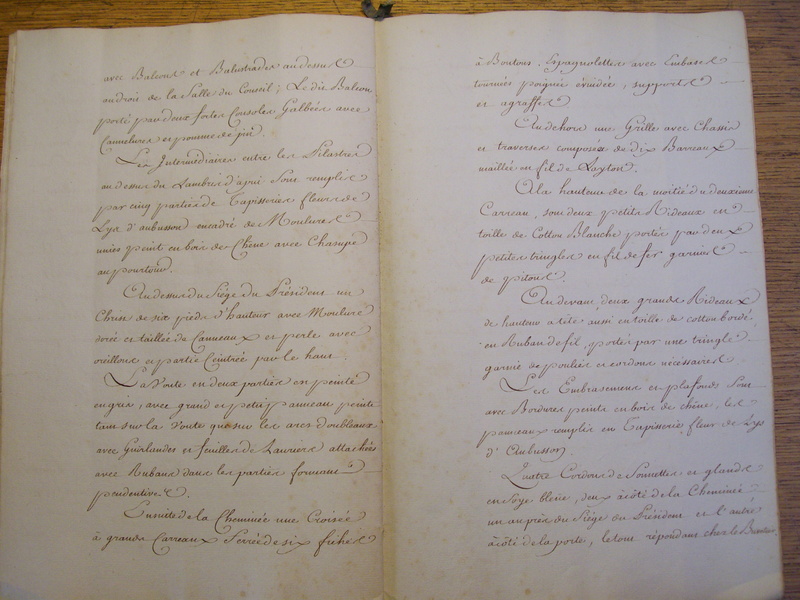 avec Balcons et Balustrades au dessus
au droit de la Salle du Conseil; Le dit Balcon
porté par deux fortes Consoles Galbées avec
Cannelures et pomme de pin.
Les Intermédiaires entre les Pilastres
au dessus du Lambris d'apui sont remplis
par cinq parties de Tapisseries fleurs de
Lys d'aubusson encadré de Moulures
unies peint en bois de Chêne avec Champs
au pourtour.
Au dessus du Siége du Président un
Christ de six pieds d'hauteur avec Moulure
dorée et taillée de Canneaux et perle avec
oreillons et partie Ceintrée par le haut.
La Voute en deux parties en peinte
en gris, avec grand et petit panneau peints
tant sur la Voute que sur les arcs doubleaux
avec Guirlandes et feuilles de Lauriers attachées
avec Rubans dans les parties formant
pendentive.
Ensuite de la Cheminée une Croisée
à grands Carreaux Ferrée de six fiches
à Boutons, Espagnolettes avec Embases
tournées poigné évuidée, supports
et agraffes.
Au dehors une Grille avec Chassis
et traverses composée de dix Barreaux
maillée en fil de Layton.
A la hauteur de la moitié du deuxieme
Carreau, sont deux petits Rideaux en
toille de Cotton Blanche portés par deux
petites tringles en fil de fer garnies
de pitons.
Au devant deux grands Rideaux
de hauteur a tête aussi en toille de cotton bordé
en Ruban de fil, portés par une tringle
garnie de poulies et cordons nécéssaires.
Les Embrasements et plafonds sont
avec Bordures peints en bois de chêne, les
panneaux remplis en Tapisseries fleur de Lys
d'Aubusson.
Quatre Cordons de Sonnettes et glands
en Soye bleüe, deux à côté de la Cheminée
un au près du Siége du Président et l'autre
à côté de la porte, le tout répondant chez le